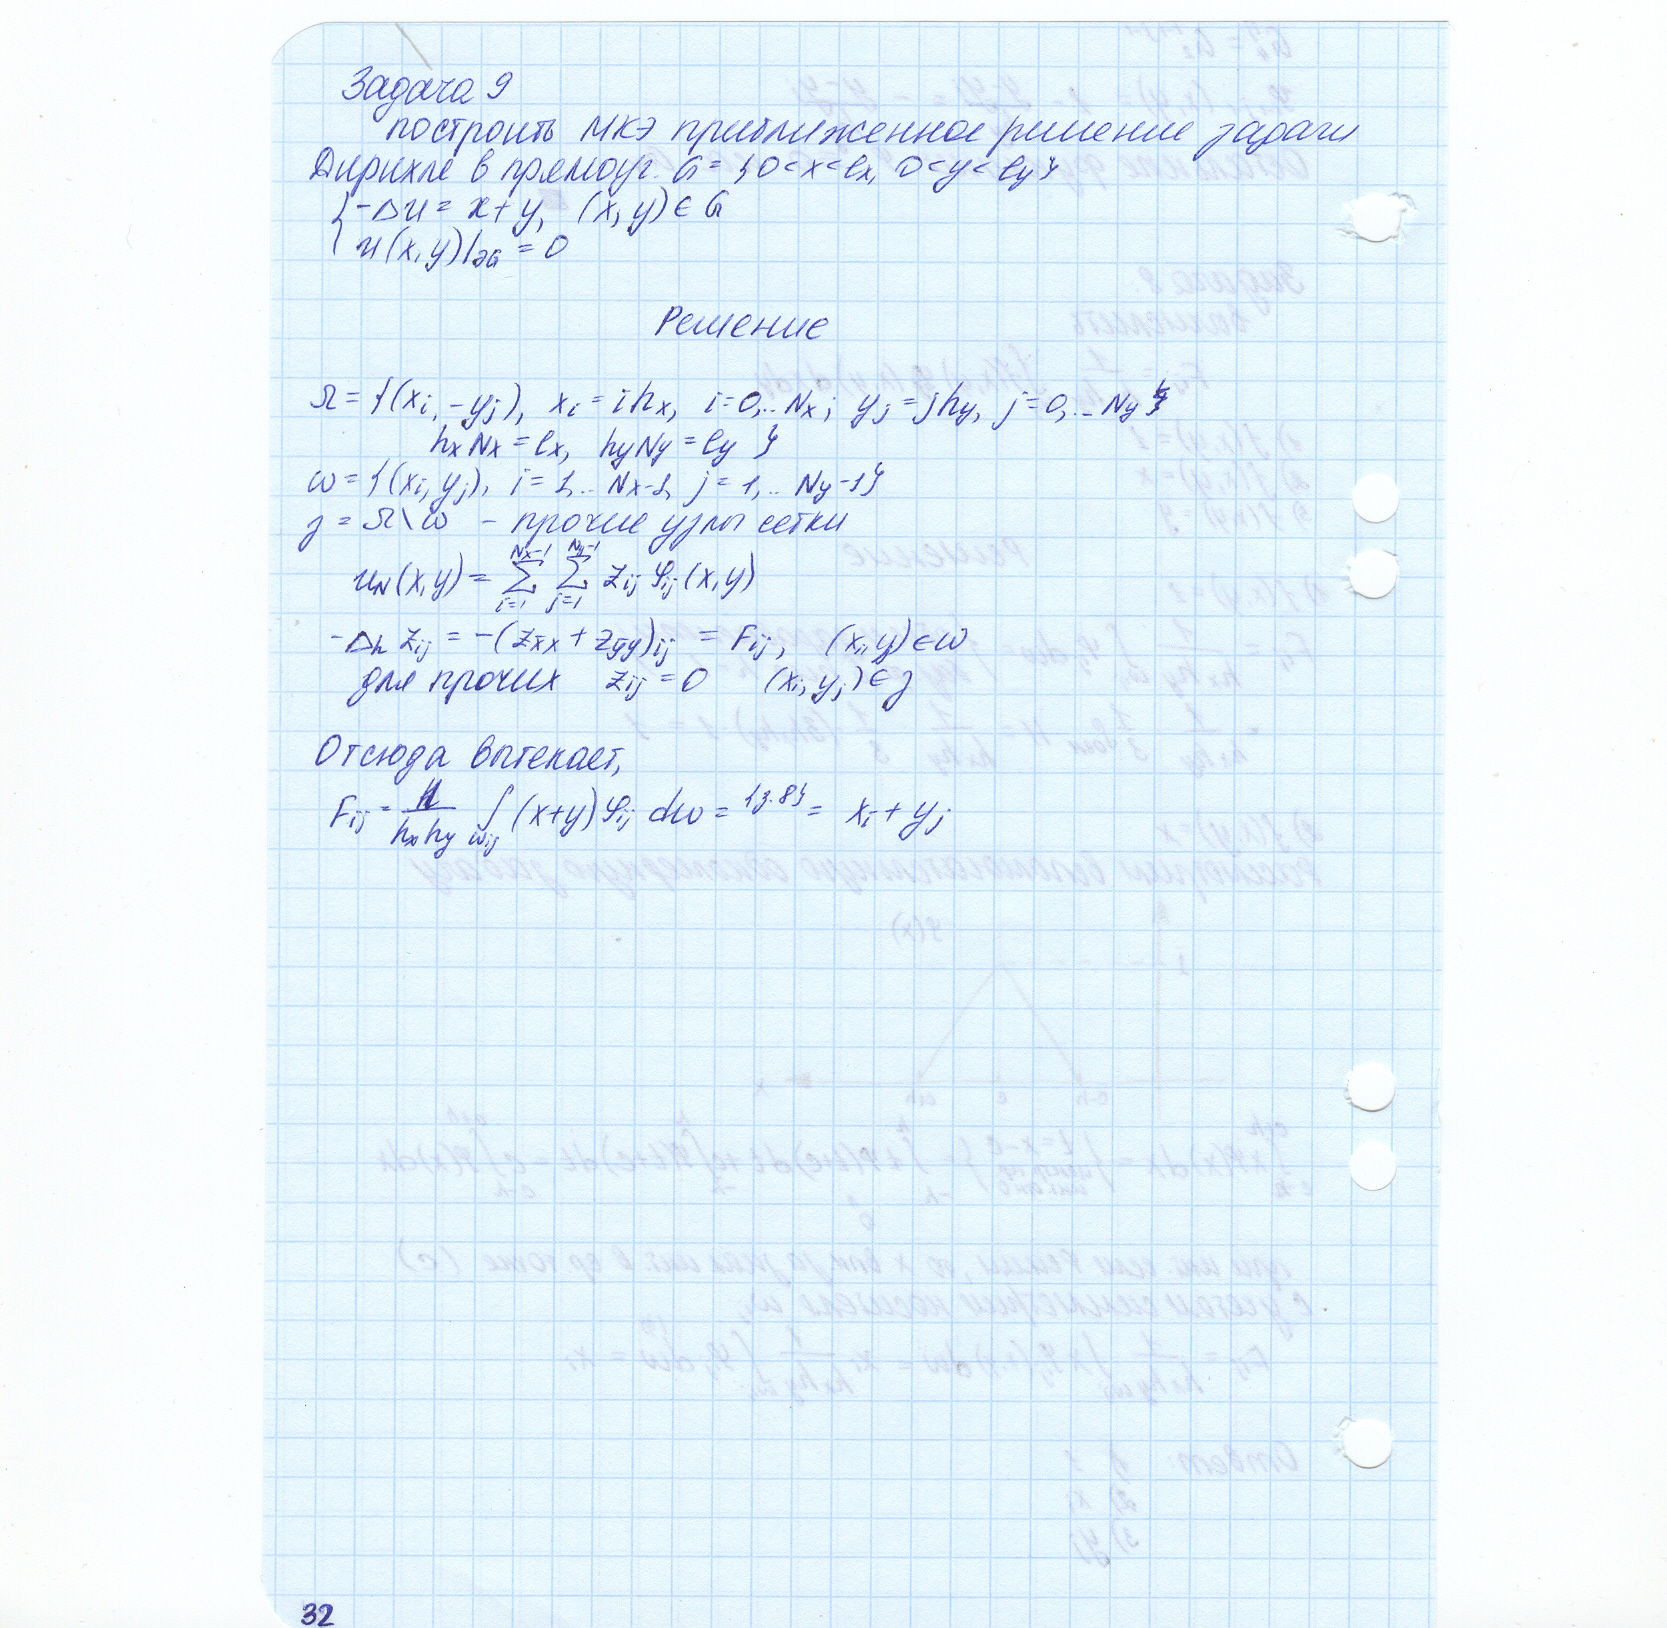 Задача 9
построить МКЭ приближенное решение задачи
Дирихле в прямоуг. G = {0<x<lx, 0<y<ly}
{ -Δu = x+y, (x,y) ∈ G
{ u(x,y)|∂G = 0
Решение
Ω = {(xi, -yj), xi = ihx, i=0,..Nx; yj = jhy, j=0,..Ny}
hxNx = lx, hyNy = ly }
ω = {(xi, yj), i=1,..Nx-1, j=1,..Ny-1}
γ = Ω\ω - прочие узлы сетки
uN(x,y) = Σ_{i=1}^{Nx-1} Σ_{j=1}^{Ny-1} zij φij(x,y)
-Δh zij = -(z_x̄x + z_ȳy)ij = Fij, (xi,y) ∈ ω
для прочих zij = 0 (xi, yj) ∈ γ
Отсюда вытекает,
Fij = 1/(hx hy) ∫_{ωij} (x+y) φij dω = {з.8} = xi + yj
32